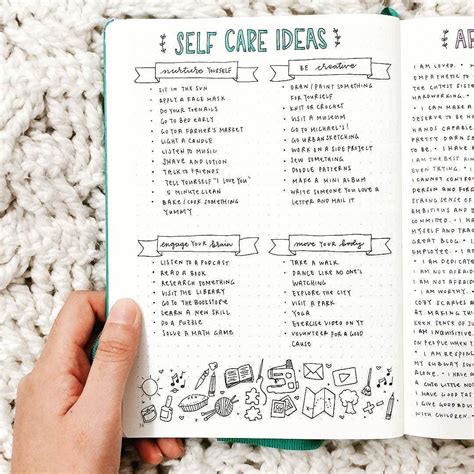 SELF CARE IDEAS
nurture yourself
• SIT IN THE SUN
• APPLY A FACE MASK
• DO YOUR TOENAILS
• GO TO BED EARLY
• GO TO A FARMER'S MARKET
• LIGHT A CANDLE
• LISTEN TO MUSIC
• SHAVE AND LOTION
• TALK TO FRIENDS
• TELL YOURSELF "I LOVE YOU"
• 5 MINUTE CLEAN
• BAKE/COOK SOMETHING
YUMMY
BE creative
• DRAW/PAINT SOMETHING
FOR YOURSELF
• KNIT OR CROCHET
• VISIT A MUSEUM
• GO TO MICHAEL'S!
• GO URBAN SKETCHING
• WORK ON A SIDE PROJECT
• SEW SOMETHING
• DOODLE PATTERNS
• MAKE A MINI ALBUM
• WRITE SOMEONE YOU LOVE A
LETTER AND MAIL IT
engage YOUR brain
• LISTEN TO A PODCAST
• READ A BOOK
• RESEARCH SOMETHING
• VISIT THE LIBRARY
• GO TO THE BOOKSTORE
• LEARN A NEW SKILL
• DO A PUZZLE
• SOLVE A MATH GAME
move YOUR body
• TAKE A WALK
• DANCE LIKE NO ONE'S
WATCHING
• EXPLORE THE CITY
• VISIT A PARK
• YOGA
• EXERCISE VIDEO ON YT
• VOLUNTEER FOR A GOOD
CAUSE
AF
I AM LOVED. • I AM
EMPATHETIC TO
THE CUTEST SISTER
HARDWORKING. •
• I CAN MAKE A
DESERVE TO BE HO
HANDS CAPABLE.
PRETTY DARN S
TO BE. • I HAVE A
I AM THE BEST KIND
EVEN TRYING. • I
I CANNOT CONTROL
PERSON AND FORGIV
STRONG SENSE OF
AMBITIOUS AND
COMMITTED. • I A
MYSELF AND TRUST
GREAT BLOG. • I AM
EMPLOYEE. • I AM
• I AM DEDICATE
I AM NOT AFRAID
AM NOT AFRAID
• I AM WORTHY. •
COZY SCARVES
BY MAKING THI
KEEN SENSE OF
I AM INQUISITIVE.
ON PEOPLE WHEN T
• I AM RESPON
MY SUBWAY
AM ALIVE. • I HAV
A CUTE LITTLE NOS
I HAVE GOOD TAS
GIVE GOOD ADV
WITH CHILDREN.